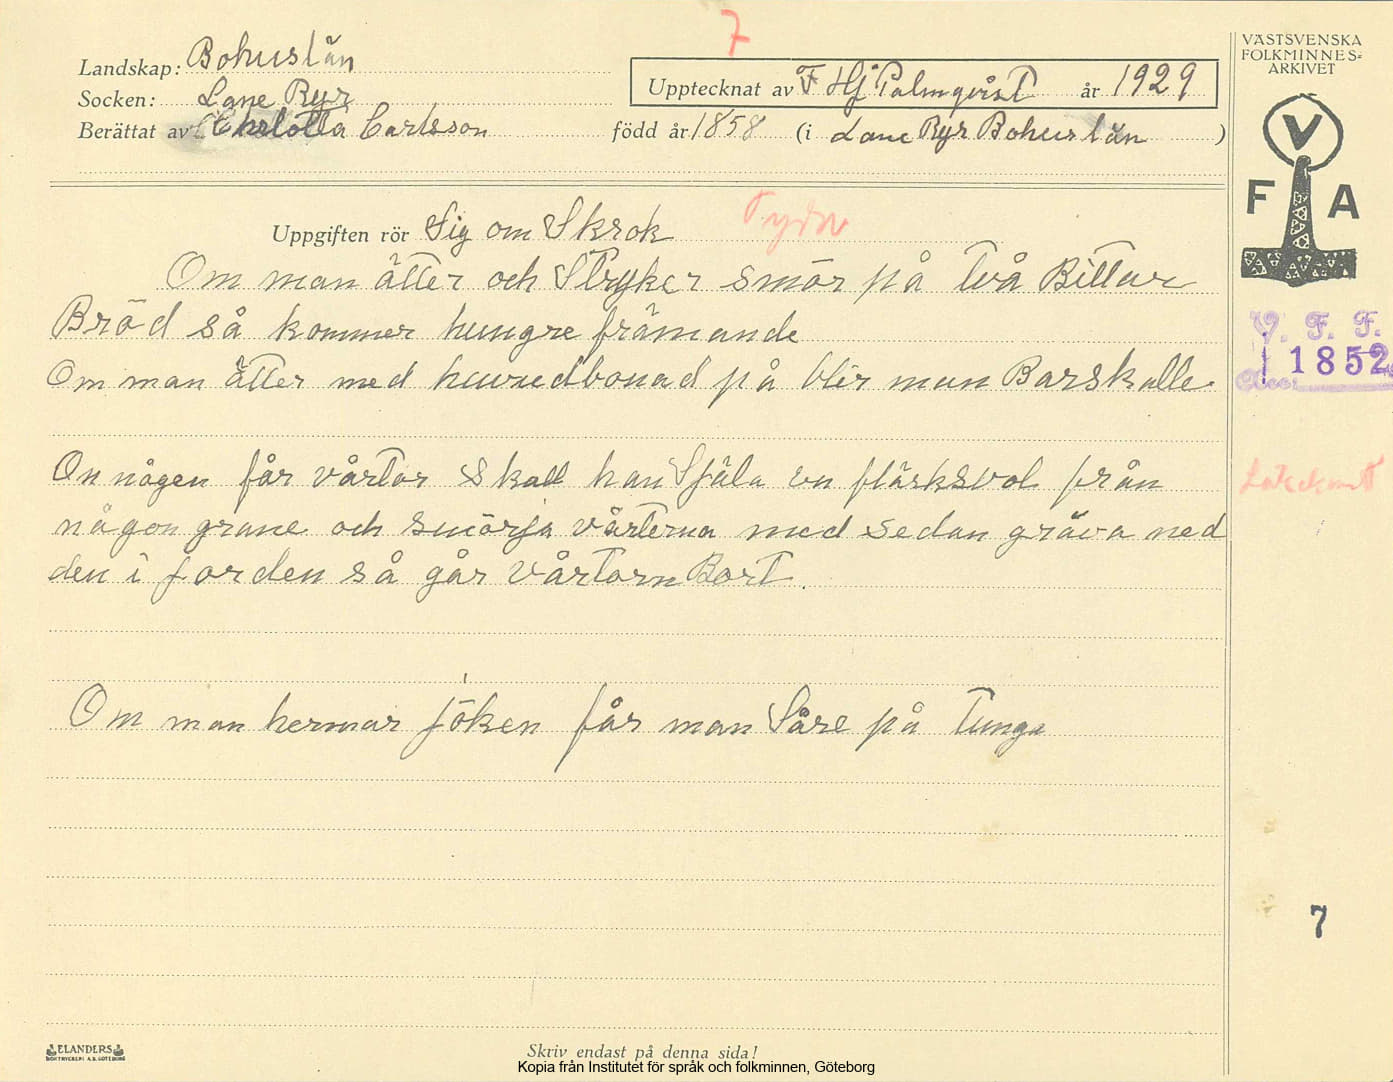 7
VÄSTSVENSKA
FOLKMINNES=
ARKIVET
Landskap: Bohuslän
Socken: Lane Ryr
Upptecknat av F Hj Palmqvist år 1929
Berättat av Charlotta Carlsson född år 1858 (i Lane Ryr Bohuslän )
V
F A
Uppgiften rör Sig om Skrok
Om man ätter och Stryker smör på två Bittar
Bröd så kommer hungre främande
V. F. F.
1852
Om man ätter med huvudbonad på blir man Barskalle
On någen får vårtor skall han Själa en fläsksvol från
någon grane och smörja vårterna med sedan gräva ned
den i jorden så går vårtorn Bort.
Om man hermar jöken får man Såre på Tunga
7
ELANDERS
BOKTRYCKERI A.B. GÖTEBORG
Skriv endast på denna sida!
Kopia från Institutet för språk och folkminnen, Göteborg